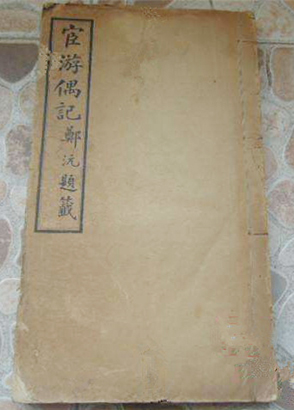 宦游偶記鄭沅題籤